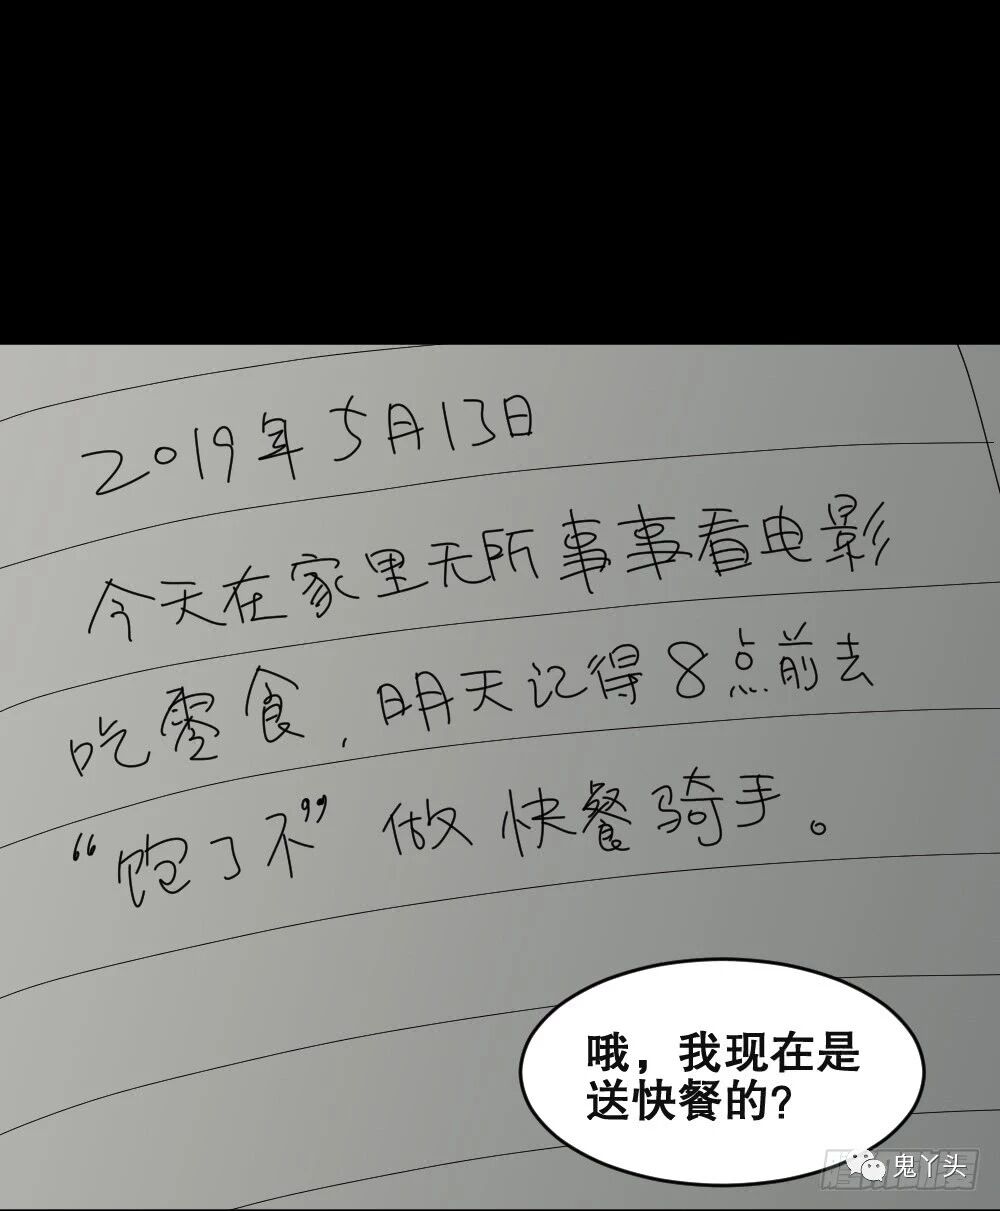 2019年5月13日
今天在家里无所事事看电影
吃零食,明天记得8点前去
“饱了不”做快餐骑手。
哦,我现在是
送快餐的?
鬼丫头